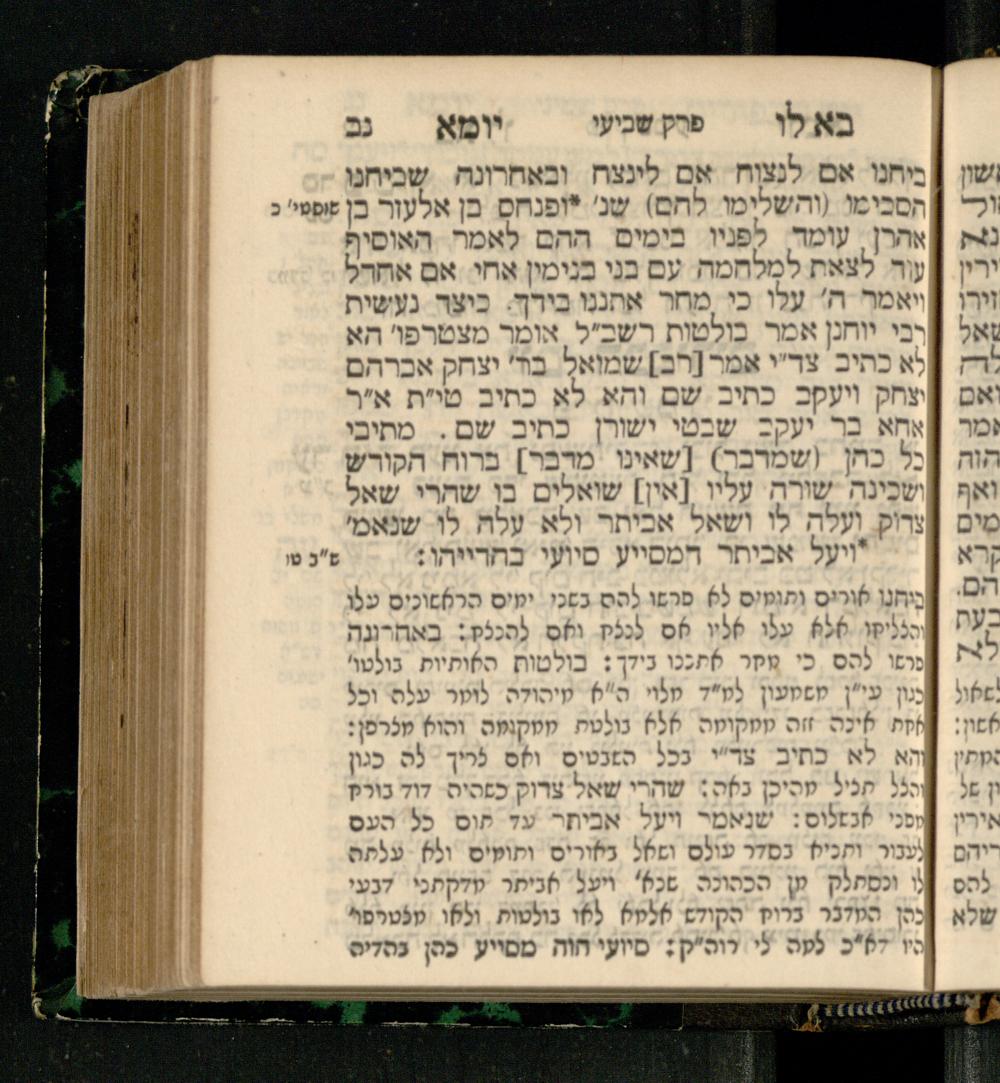 בא לו פרק שביעי יומא נב
ביחנו אם לנצוח אם לינצח ובאחרונה שביחנו
הסכימו (והשלימו להם) שנ' *ופנחם בן אלעזר בן שופטי' כ
אהרן עומד לפניו בימים ההם לאמר האוסיף
עוד לצאת למלחמה עם בני בנימין אחי אם אחדל
ויאמר ה' עלו כי מחר אתננו בידך. כיצד נעשית
רבי יוחנן אמר בולטות רשב"ל אומר מצטרפו' הא
לא כתיב צד"י אמר [רב] שמואל בר' יצחק אברהם
יצחק ויעקב כתיב שם והא לא כתיב טי"ת א"ר
אחא בר יעקב שבטי ישורן כתיב שם. מתיבי
כל כהן (שמדבר) [שאינו מדבר] ברוח הקורש
ושכינה שורה עליו [אין] שואלים בו שהרי שאל
צדוק ועלה לו ושאל אביתר ולא עלה לו שנאמ'
*ויעל אביתר המסייע סיועי בהרייהו: ש"ב טו
ביחנו אורים ותומים לא פרשו להם בשני ימים הראשונים עלו
והצליחו אלא עלו אליו אם לנצח ואם להנצח: באחרונה
פרשו להם כי מחר אתננו בידך: בולטות האותיות בולטו'
כגון עי"ן משמעון למ"ד מלוי ה"א מיהודה לומר עלה וכל
אחת אינה זזה ממקומה אלא בולטת ממקומה והוא מצרפן:
והא לא כתיב צד"י בכל השבטים ואם צריך לה כגון
והצל תציל מהיכן באה: שהרי שאל צדוק כשהיה דוד בורח
מפני אבשלום: שנאמר ויעל אביתר עד תום כל העם
לעבור ותניא בסדר עולם ושאל באורים ותומים ולא עלתה
לו ונסתלק מן הכהונה שנא' ויעל אביתר מדקתני דבעי
כהן המדבר ברוח הקודש אלמא לאו בולטות ולאו מצטרפו'
היו דא"כ למה לי רוה"ק: סיועי הוה מסייע כהן בהדיה